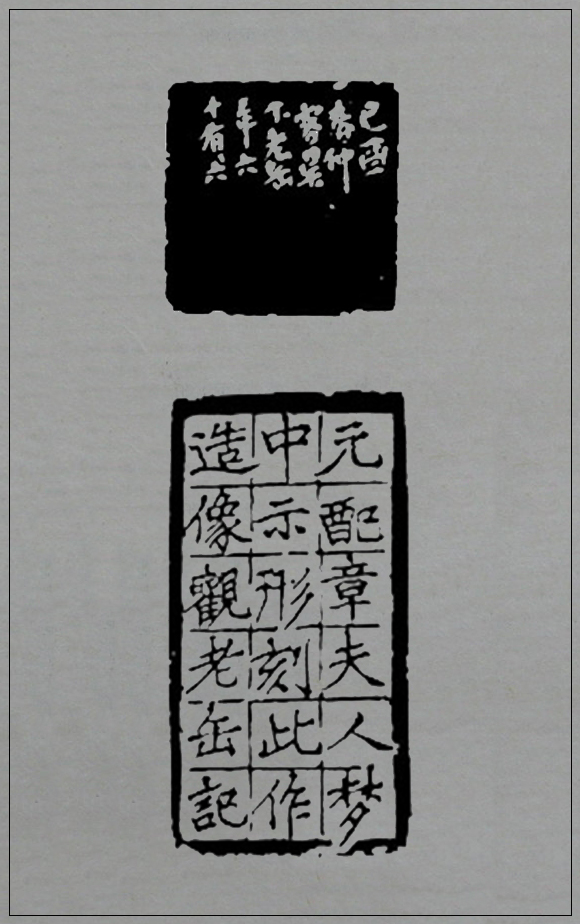 己酉
春仲
客吳
下老缶
年六
十有六
元配章夫人梦
中示形刻此作
造像觀老缶記